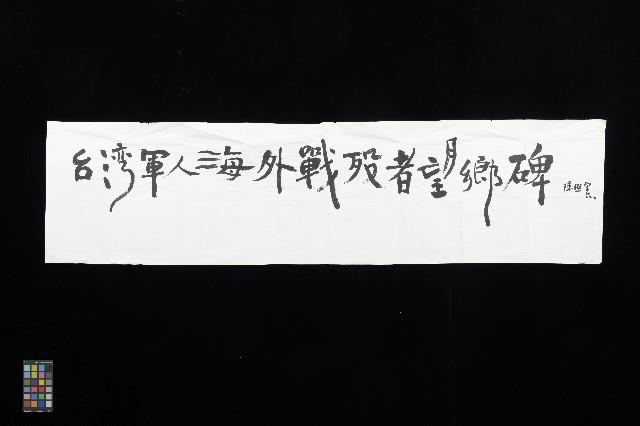 台湾軍人海外戰歿者望鄉碑